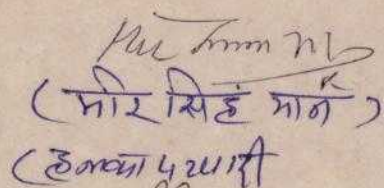 (मीर सिंह मान)
(हल्का पटवारी